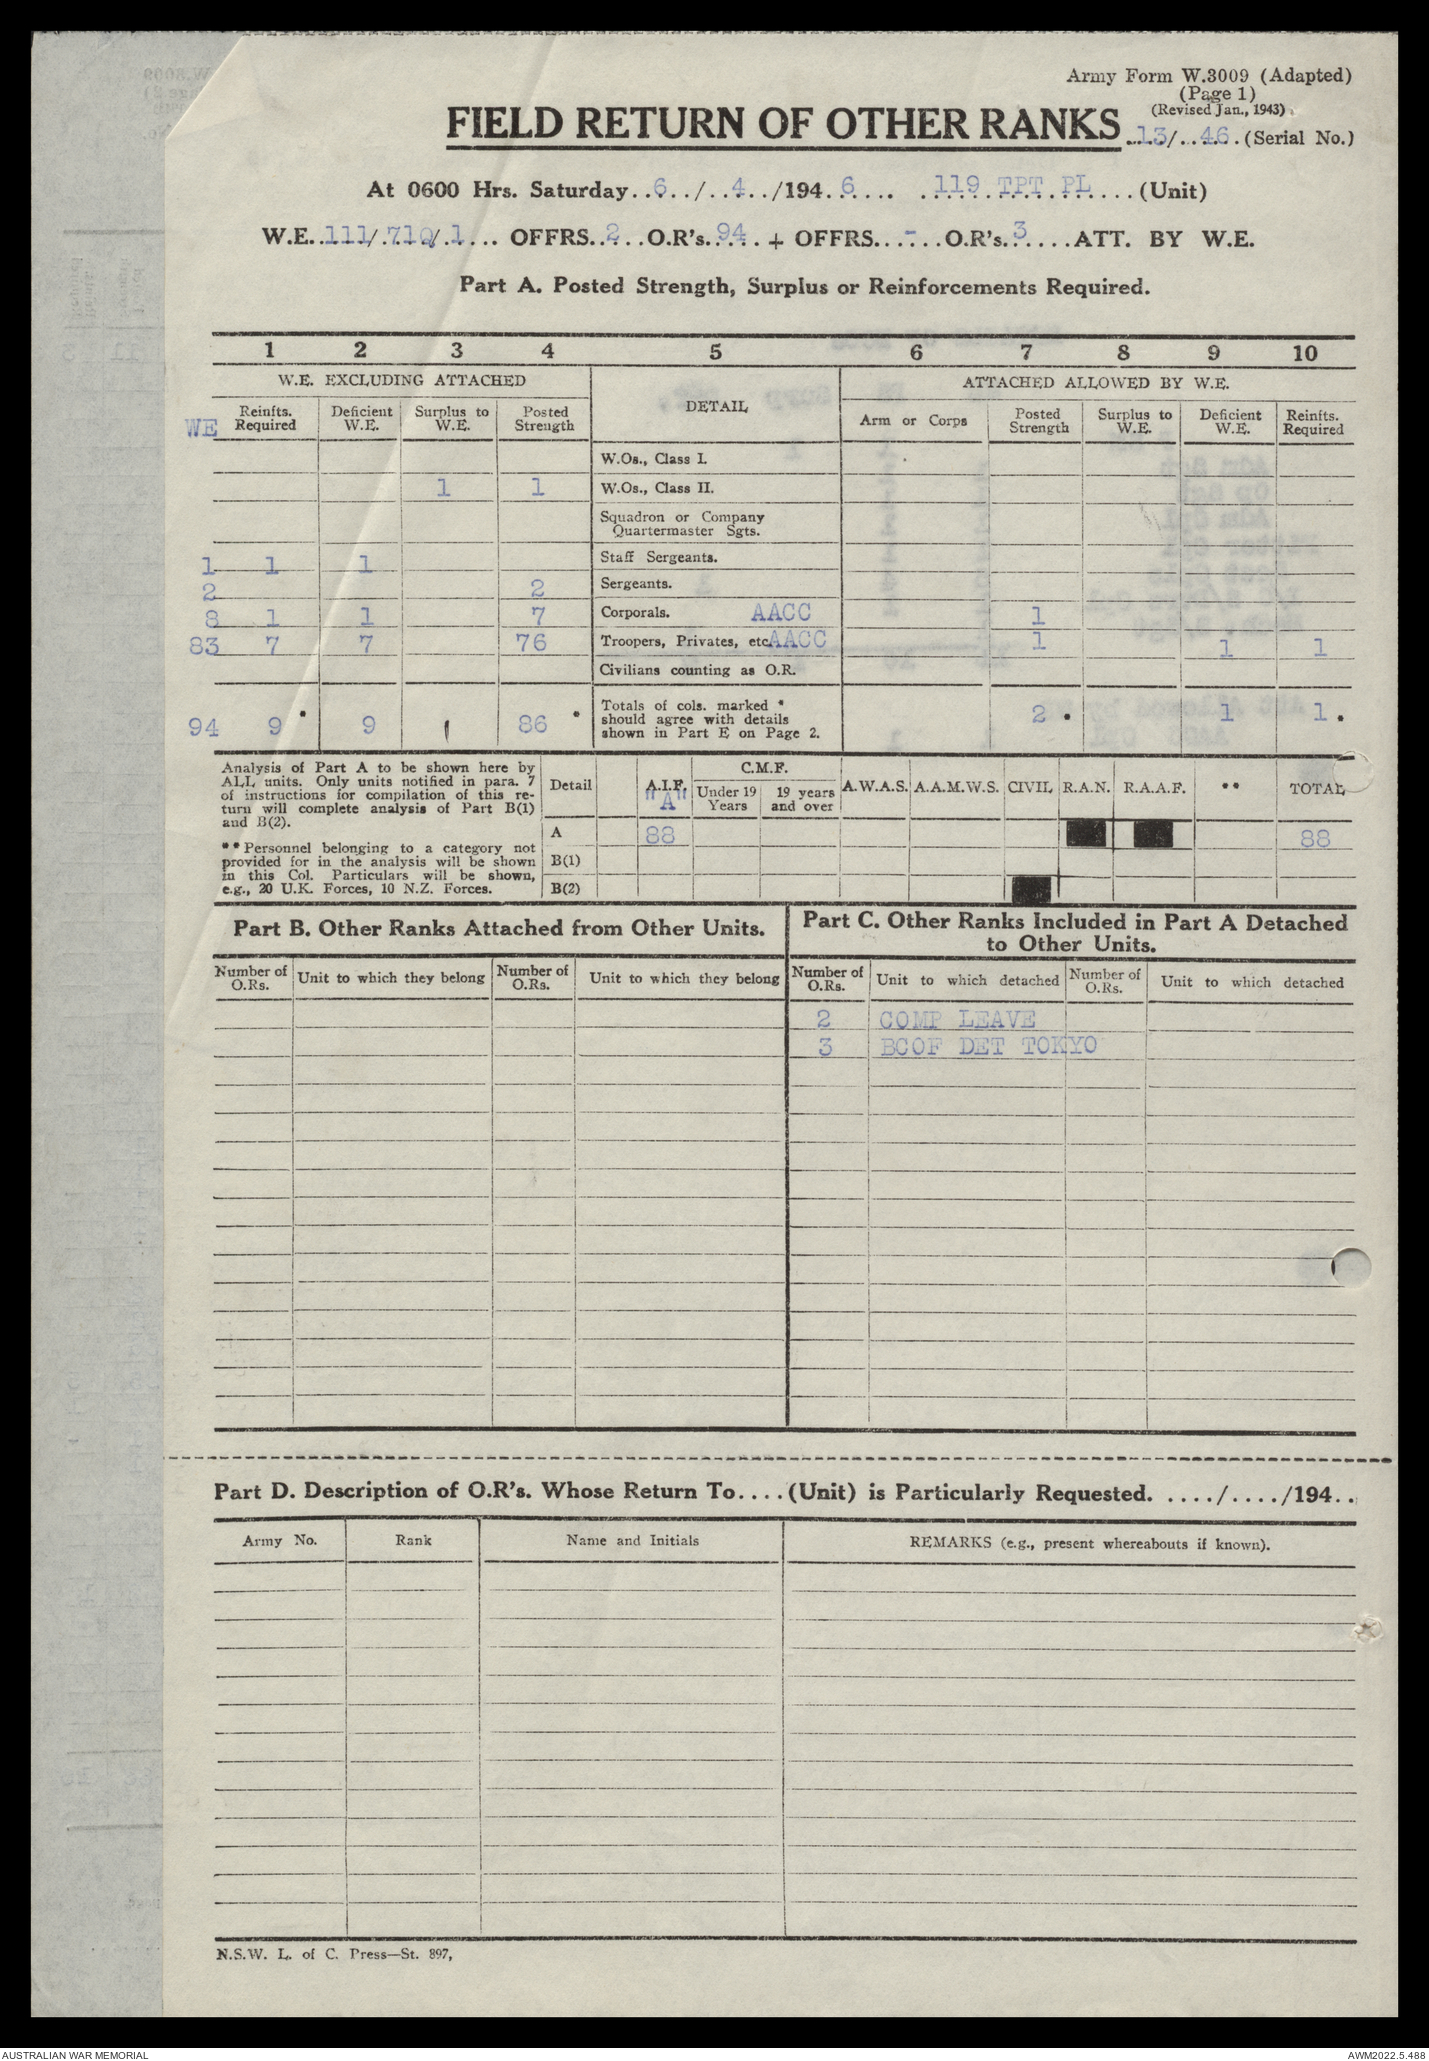 Army Form W.3009 (Adapted)
(Page 1)
(Revised Jan., 1943)
FIELD RETURN OF OTHER RANKS ..13/..46.(Serial No.)
At 0600 Hrs. Saturday..6../..4../194.6.... ....119 TPT PL....(Unit)
W.E..111/.710/.1.... OFFRS..2...O.R's.94.. + OFFRS...-...O.R's.3.....ATT. BY W.E.
Part A. Posted Strength, Surplus or Reinforcements Required.
1 2 3 4 5 6 7 8 9 10
W.E. EXCLUDING ATTACHED DETAIL ATTACHED ALLOWED BY W.E.
WE Reinfts. Required Deficient W.E. Surplus to W.E. Posted Strength Arm or Corps Posted Strength Surplus to W.E. Deficient W.E. Reinfts. Required
W.Os., Class I.
1 1 W.Os., Class II.
Squadron or Company
Quartermaster Sgts.
1 1 1 Staff Sergeants.
2 2 Sergeants.
8 1 1 7 Corporals. AACC 1
83 7 7 76 Troopers, Privates, etc AACC 1 1 1
Civilians counting as O.R.
94 9 * 9 1 86 * Totals of cols. marked * should agree with details shown in Part E on Page 2. 2 * 1 1 *
Analysis of Part A to be shown here by
ALL units. Only units notified in para. 7
of instructions for compilation of this re-
turn will complete analysis of Part B(1)
and B(2).
**Personnel belonging to a category not
provided for in the analysis will be shown
in this Col. Particulars will be shown,
e.g., 20 U.K. Forces, 10 N.Z. Forces.
Detail A.I.F. "A" C.M.F. Under 19 Years 19 years and over A.W.A.S. A.A.M.W.S. CIVIL R.A.N. R.A.A.F. ** TOTAL
A 88 88
B(1)
B(2)
Part B. Other Ranks Attached from Other Units.
Part C. Other Ranks Included in Part A Detached
to Other Units.
Number of O.Rs. Unit to which they belong Number of O.Rs. Unit to which they belong Number of O.Rs. Unit to which detached Number of O.Rs. Unit to which detached
2 COMP LEAVE
3 BCOF DET TOKYO
Part D. Description of O.R's. Whose Return To....(Unit) is Particularly Requested. ..../..../194..
Army No. Rank Name and Initials REMARKS (e.g., present whereabouts if known).
N.S.W. L. of C. Press—St. 897,
AUSTRALIAN WAR MEMORIAL AWM2022.5.488